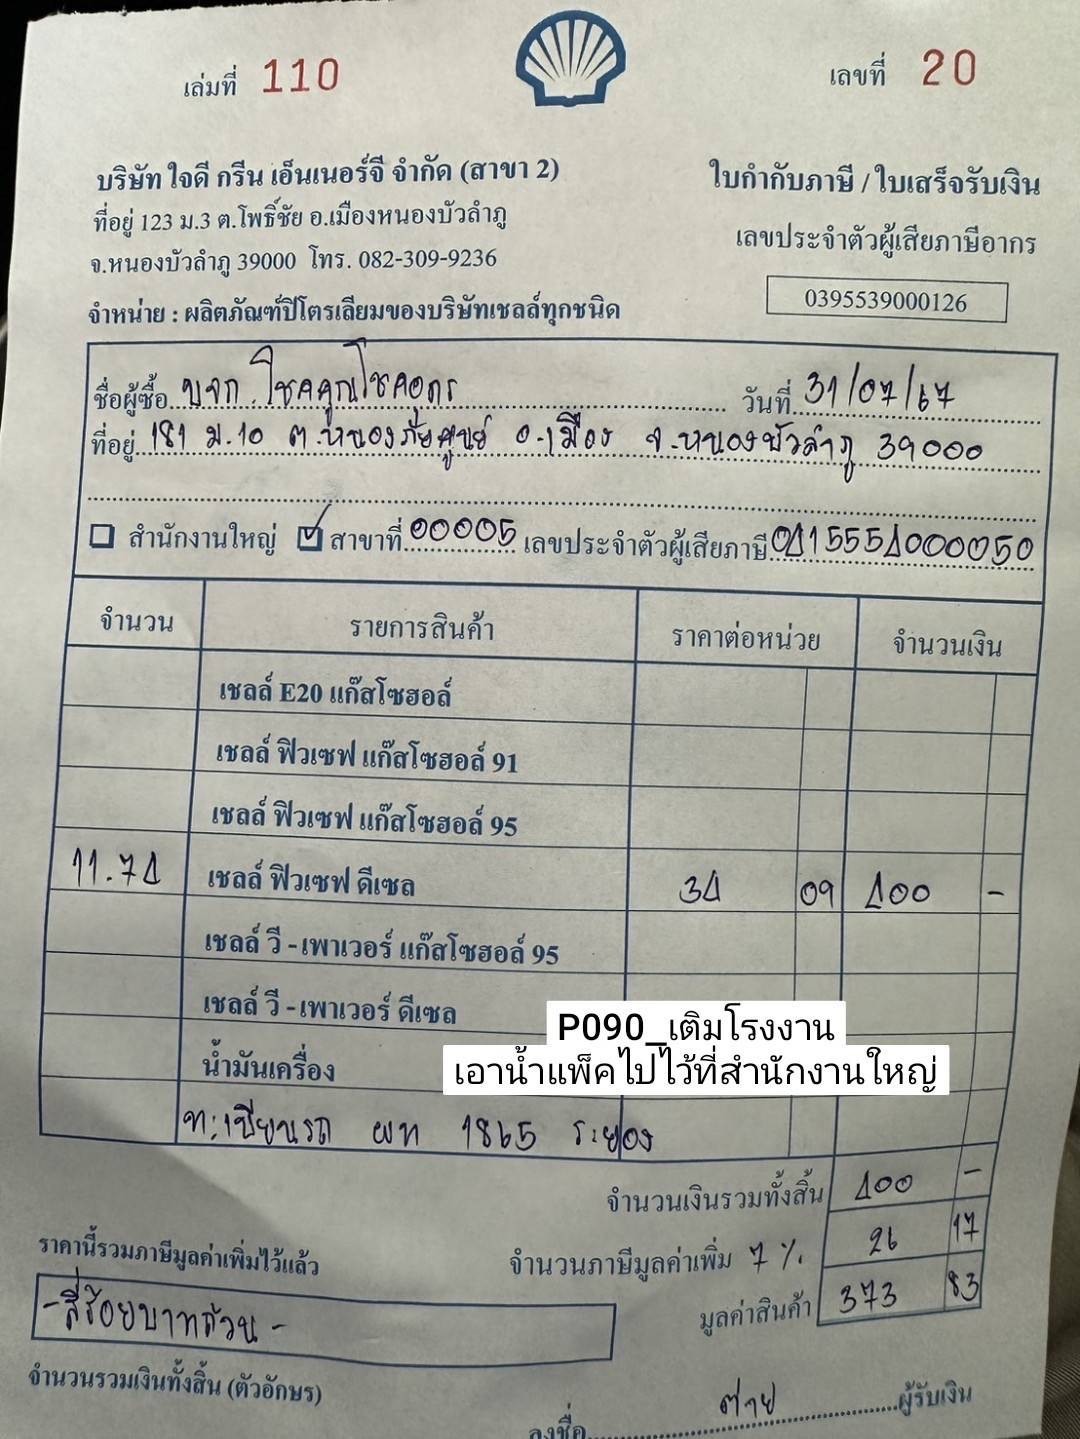 เล่มที่ 110
เลขที่ 20
บริษัท ใจดี กรีน เอ็นเนอร์จี จำกัด (สาขา 2)
ที่อยู่ 123 ม.3 ต.โพธิ์ชัย อ.เมืองหนองบัวลำภู
จ.หนองบัวลำภู 39000 โทร. 082-309-9236
จำหน่าย : ผลิตภัณฑ์ปิโตรเลียมของบริษัทเชลล์ทุกชนิด
ใบกำกับภาษี / ใบเสร็จรับเงิน
เลขประจำตัวผู้เสียภาษีอากร
0395539000126
ชื่อผู้ซื้อ บจก. โชคคูณโชคอุดร วันที่ 31/07/67
ที่อยู่ 181 ม.10 ต.หนองภัยศูนย์ อ.เมือง จ.หนองบัวลำภู 39000
สำนักงานใหญ่ สาขาที่ 00005 เลขประจำตัวผู้เสียภาษี 0415554000050
จำนวน รายการสินค้า ราคาต่อหน่วย จำนวนเงิน
เชลล์ E20 แก๊สโซฮอล์
เชลล์ ฟิวเซฟ แก๊สโซฮอล์ 91
เชลล์ ฟิวเซฟ แก๊สโซฮอล์ 95
11.74 เชลล์ ฟิวเซฟ ดีเซล 34 09 400 -
เชลล์ วี - เพาเวอร์ แก๊สโซฮอล์ 95
เชลล์ วี - เพาเวอร์ ดีเซล
P090_เติมโรงงาน
เอาน้ำแพ็คไปไว้ที่สำนักงานใหญ่
น้ำมันเครื่อง
ทะเบียนรถ ผท 1865 ระยอง
จำนวนเงินรวมทั้งสิ้น 400 -
ราคานี้รวมภาษีมูลค่าเพิ่มไว้แล้ว จำนวนภาษีมูลค่าเพิ่ม 7 % 26 17
- สี่ร้อยบาทถ้วน - มูลค่าสินค้า 373 83
จำนวนรวมเงินทั้งสิ้น (ตัวอักษร)
ลงชื่อ ต่าย ผู้รับเงิน